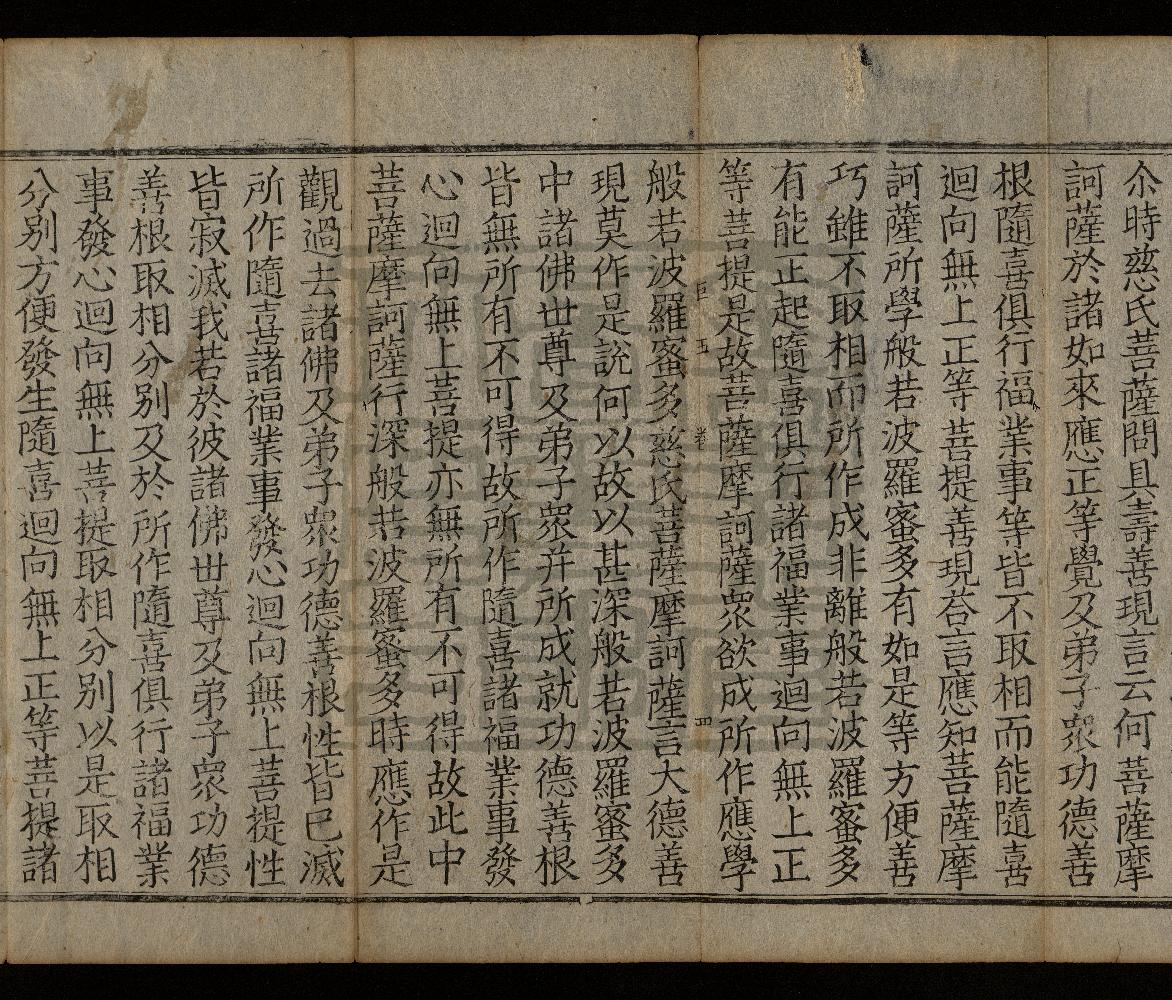 尒時慈氏菩薩問具壽善現言云何菩薩摩
訶薩於諸如來應正等覺及弟子衆功德善
根隨喜俱行福業事等皆不取相而能隨喜
迴向無上正等菩提善現荅言應知菩薩摩
訶薩所學般若波羅蜜多有如是等方便善
巧雖不取相而所作成非離般若波羅蜜多
有能正起隨喜俱行諸福業事迴向無上正
等菩提是故菩薩摩訶薩衆欲成所作應學
巨五 卷 四
般若波羅蜜多慈氏菩薩摩訶薩言大德善
現莫作是說何以故以甚深般若波羅蜜多
中諸佛世尊及弟子衆并所成就功德善根
皆無所有不可得故所作隨喜諸福業事發
心迴向無上菩提亦無所有不可得故此中
菩薩摩訶薩行深般若波羅蜜多時應作是
觀過去諸佛及弟子衆功德善根性皆已滅
所作隨喜諸福業事發心迴向無上菩提性
皆寂滅我若於彼諸佛世尊及弟子衆功德
善根取相分別及於所作隨喜俱行諸福業
事發心迴向無上菩提取相分別以是取相
分別方便發生隨喜迴向無上正等菩提諸